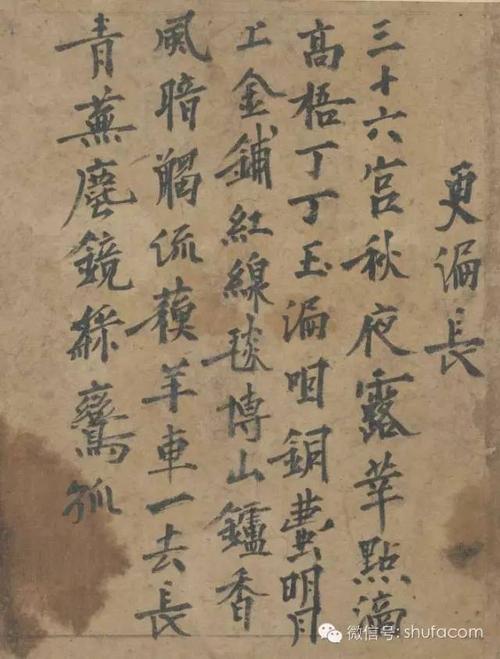 更漏長
三十六宮秋夜露華點滴
高梧丁丁玉漏咽銅壺明月
上金鋪紅線毯博山鑪香
風暗觸流蘇羊車一去長
青蕪塵鏡綵鸞孤
微信号: shufacom